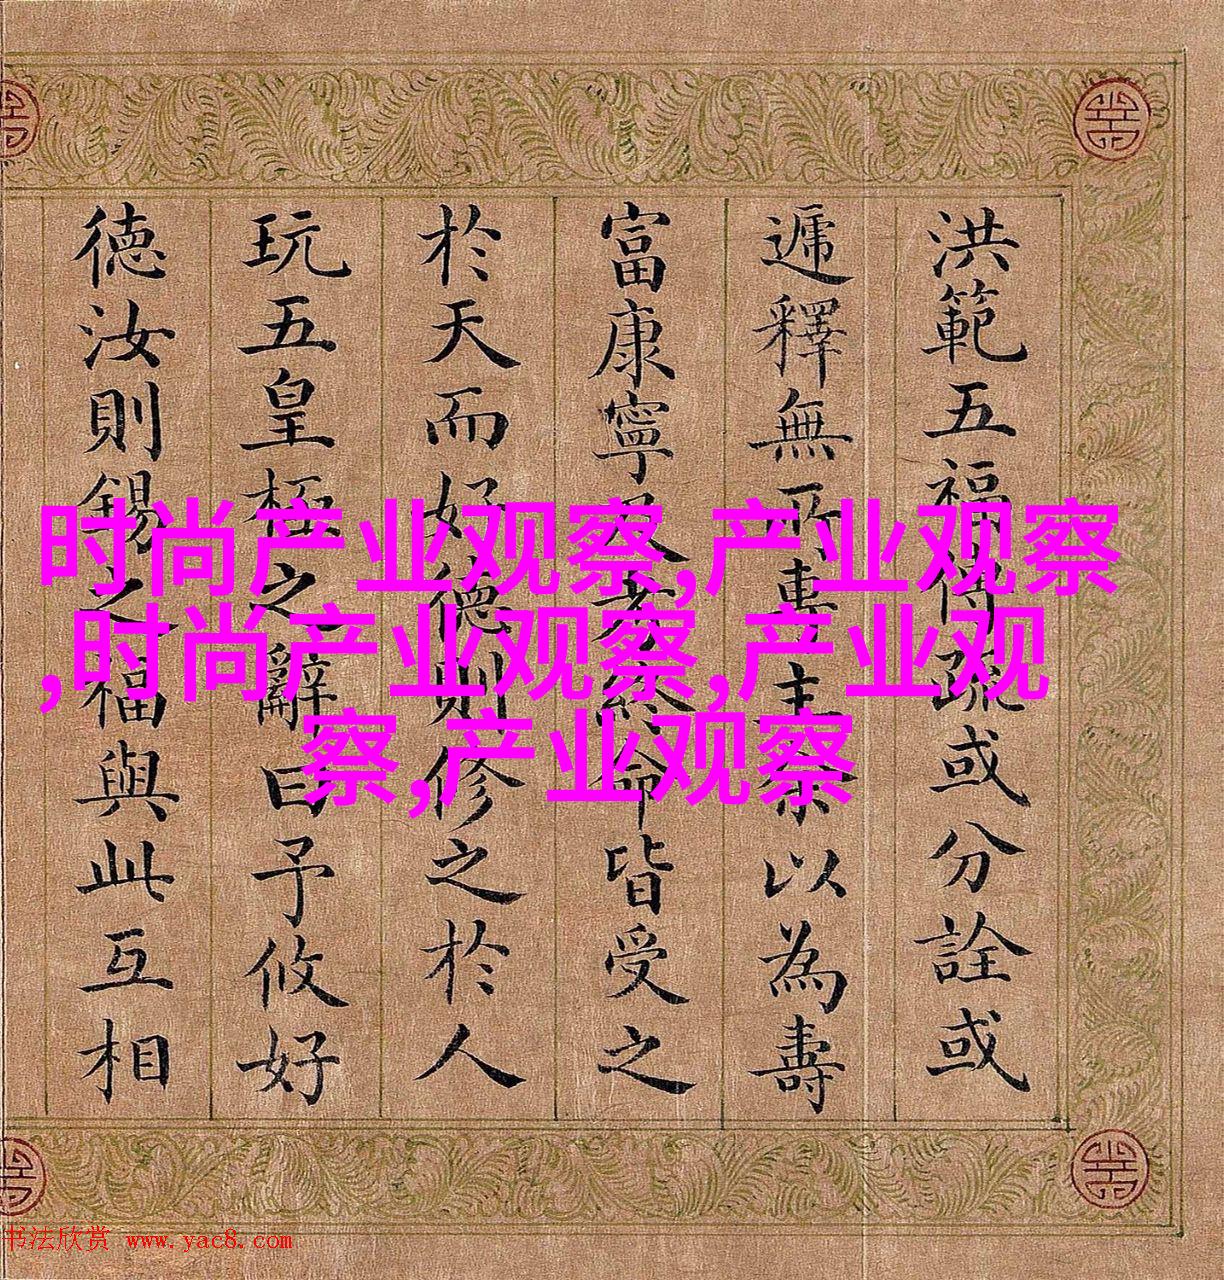 洪範五福傳疏或分詮或
遞釋無所專主余以為壽
富康寧又考終命皆受之
於天而好德則修之於人
玩五皇極之辭曰予攸好
德汝則錫之福與此互相
时尚产业观察,产业观察
,时尚产业观察,产业观
察,产业观察
书法欣赏 www.yac8.com